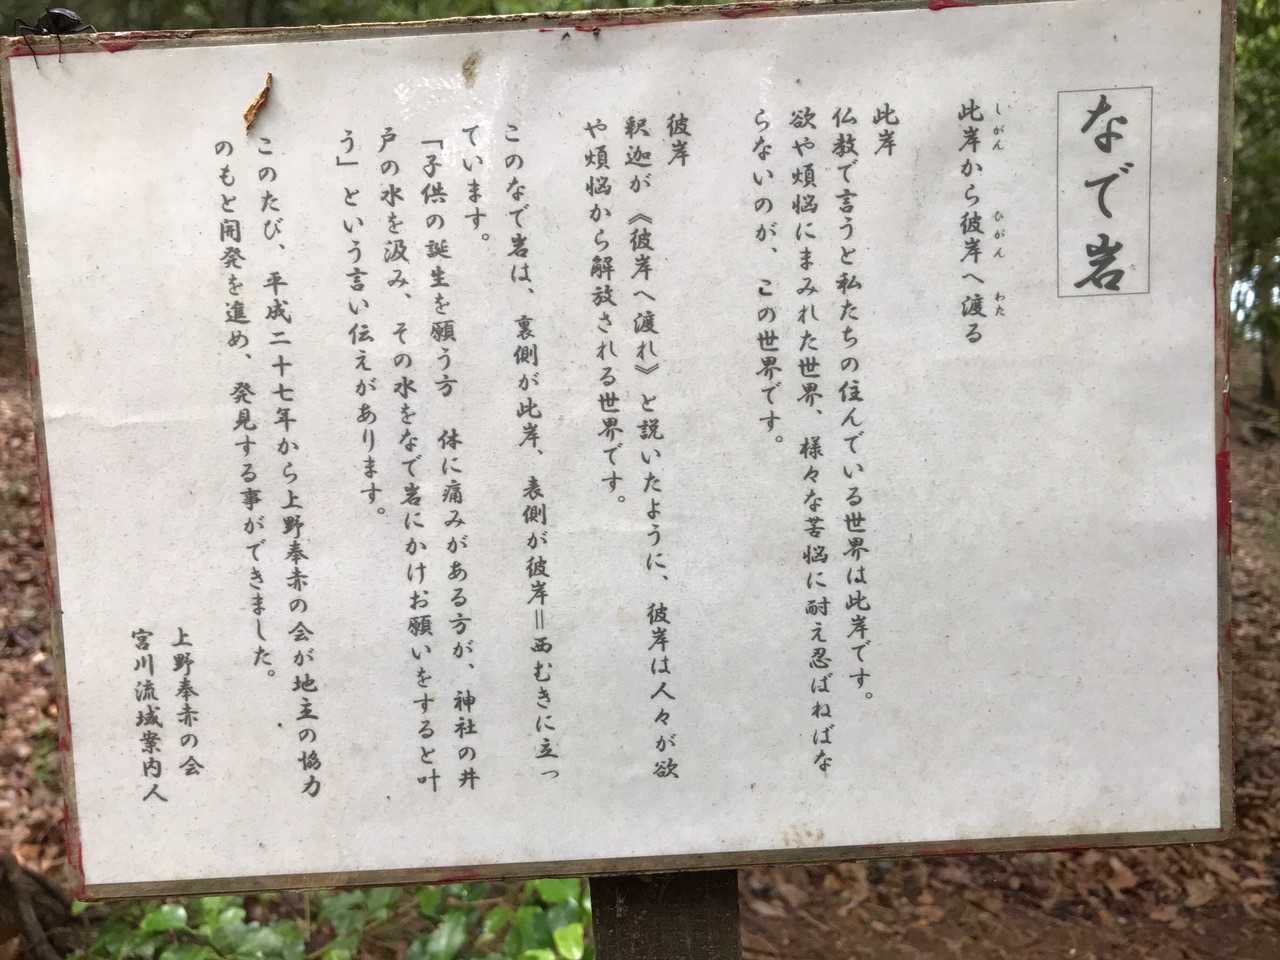 なで岩
此岸から彼岸へ渡る
しがん ひがん わた
此岸
仏教で言うと私たちの住んでいる世界は此岸です。
欲や煩悩にまみれた世界、様々な苦悩に耐え忍ばねばな
らないのが、この世界です。
彼岸
釈迦が《彼岸へ渡れ》と説いたように、彼岸は人々が欲
や煩悩から解放される世界です。
このなで岩は、裏側が此岸、表側が彼岸＝西むきに立っ
ています。
「子供の誕生を願う方 体に痛みがある方が、神社の井
戸の水を汲み、その水をなで岩にかけお願いをすると叶
う」という言い伝えがあります。
このたび、平成二十七年から上野奉赤の会が地主の協力
のもと開発を進め、発見する事ができました。
上野奉赤の会
宮川流域案内人